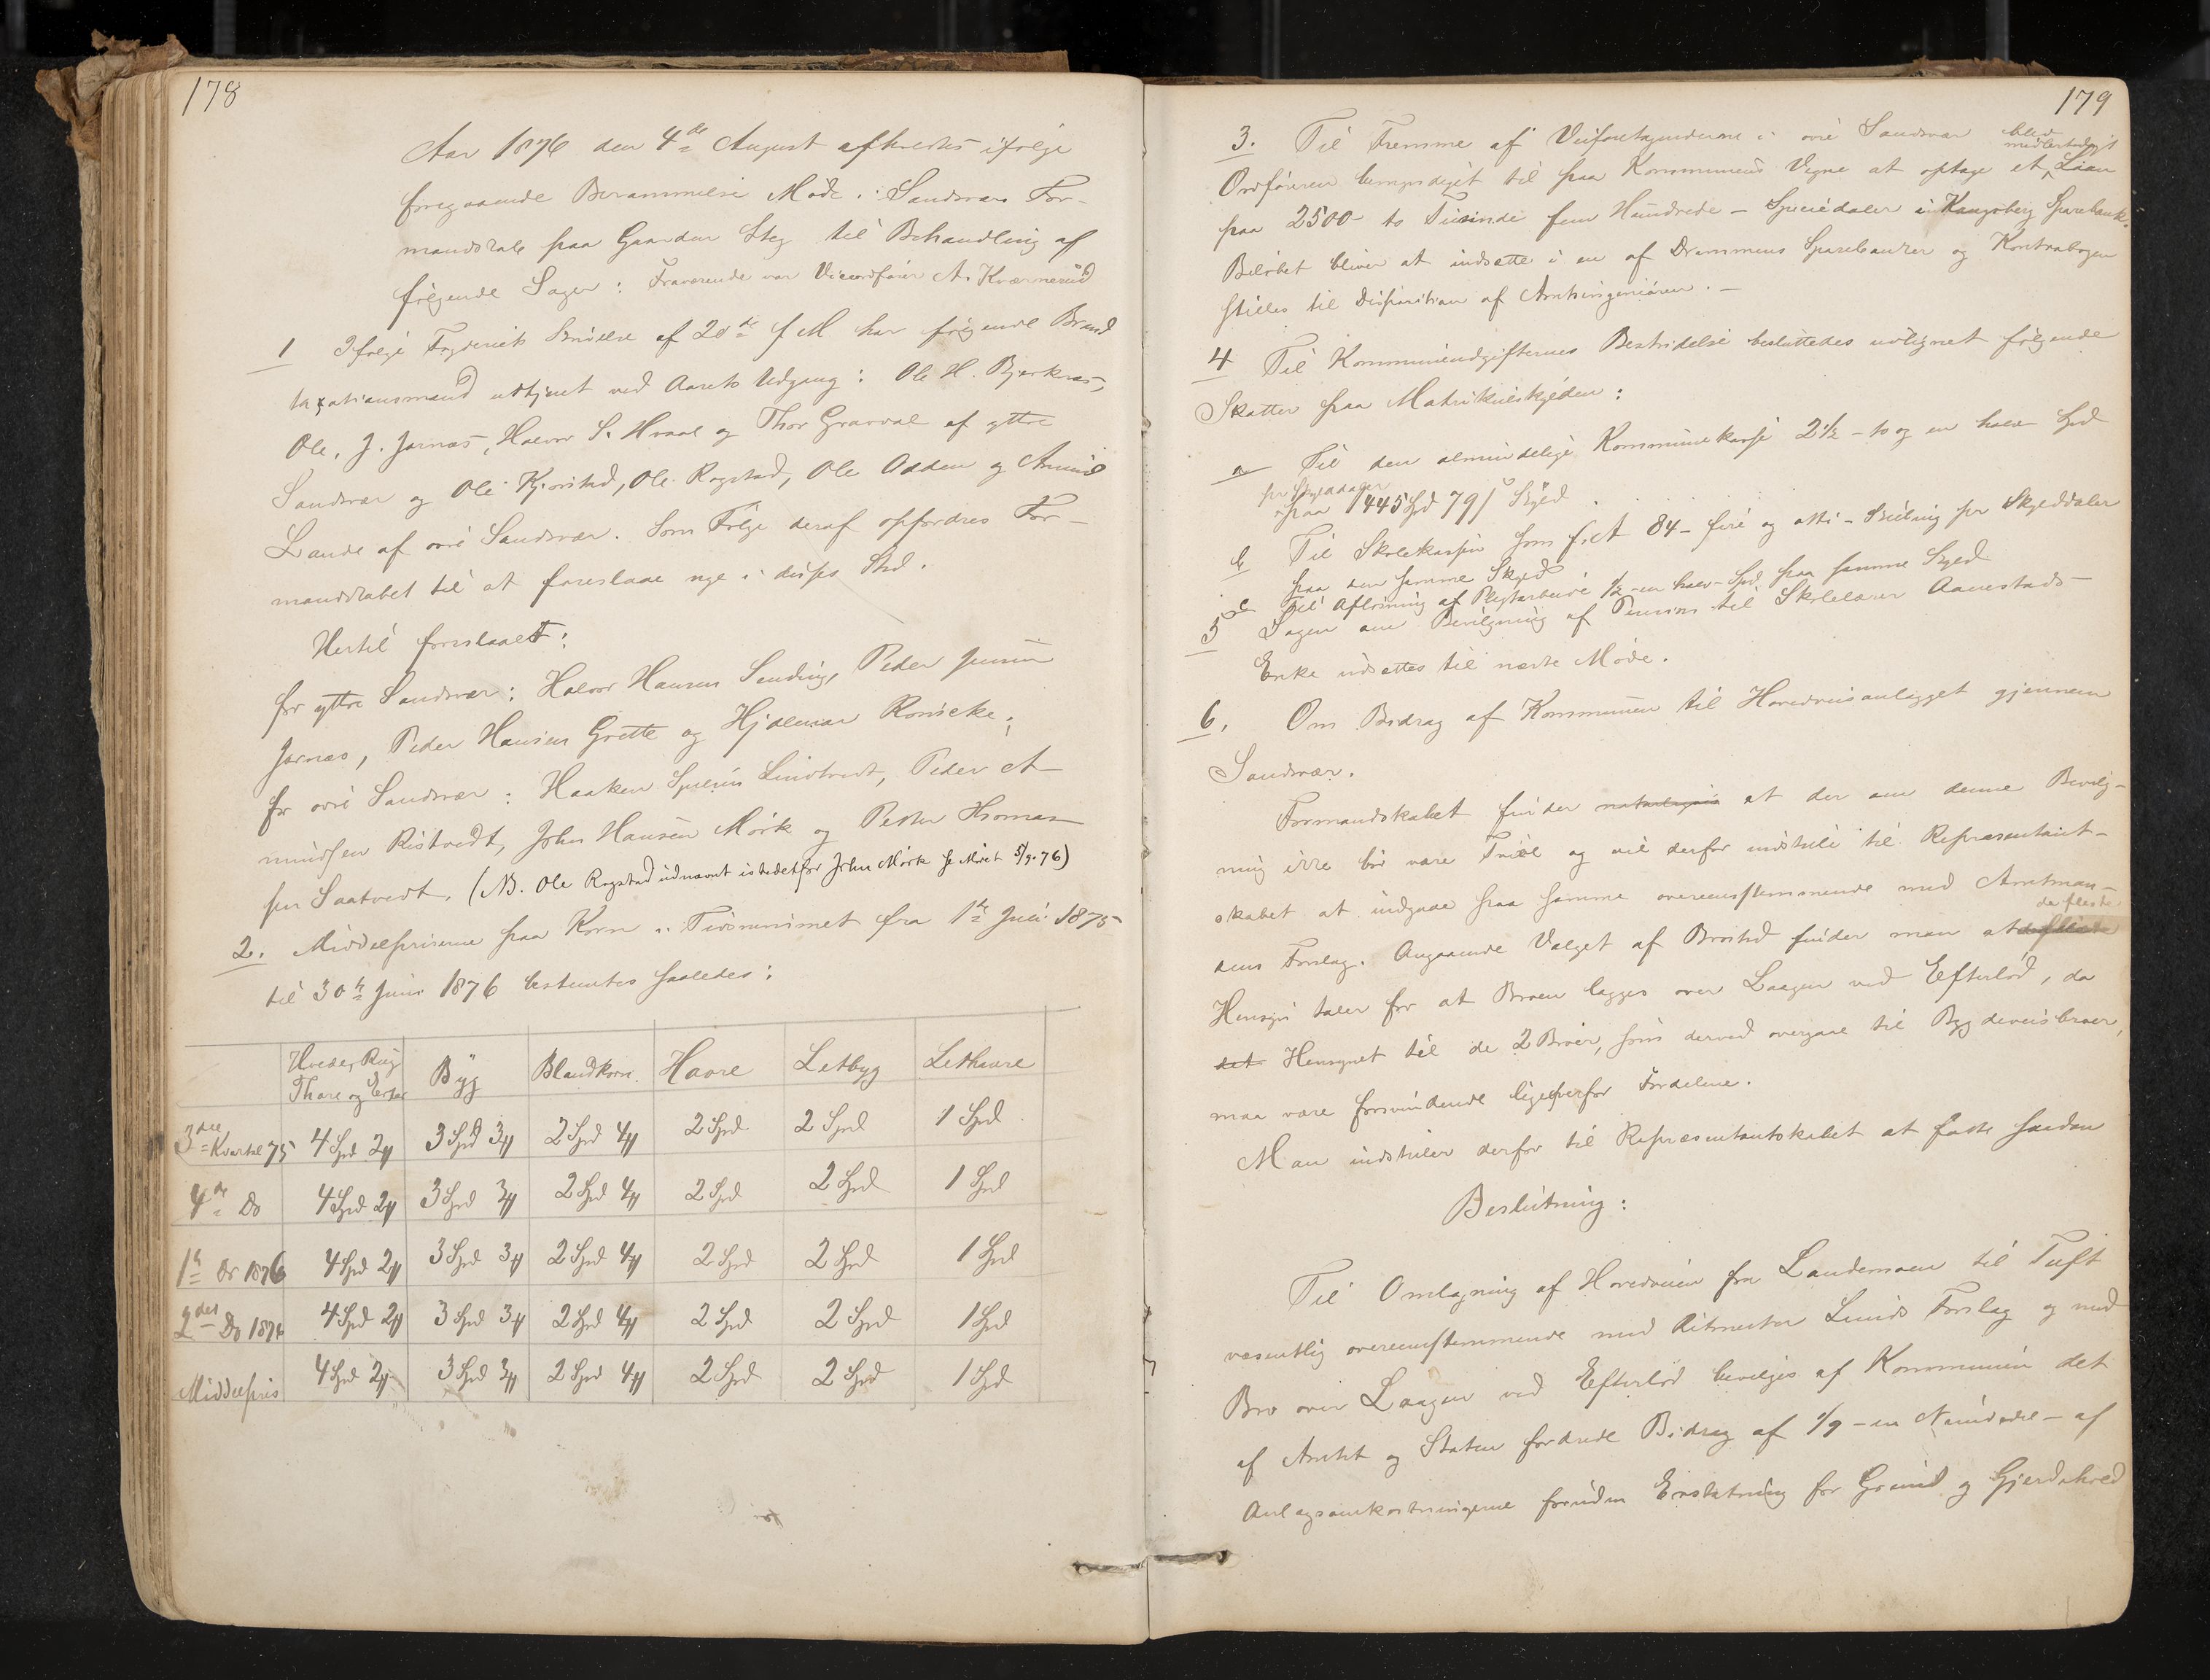 178
Aar 1876 den 4de August afholdtes ifølge
foregaaende Berammelse Møde i Sandsvær For-
mandskab paa Gaarden Steg til Behandling af
følgende Sager: Fraværende var Viceordfører A. Kværnerud
1 Ifølge Fogderiets Skrivelse af 20de f M har følgende Brand
taxationsmænd udtjent ved Aarets Udgang: Ole H. Bjerknæs,
Ole, J. Jarnæs, Halvor S. Hvaal og Thor Gravdal af yttre
Sandsvær og Ole Kjørstad, Ole Rogstad, Ole Odden og Amund
Lande af øvre Sandsvær. Som Følge deraf opfordres For-
mandskabet til at foreslaae nye i disses Sted.
Hertil foreslaaet:
for yttre Sandsvær: Halvor Hansen Sending, Peder Jensen
Jarnæs, Peder Hansen Grette og Hjalmar Ronicke;
for øvre Sandsvær: Haaken Lindtvedt, Peder A-
mundsen Ristvedt, John Hansen Mørk og Petter Thomas-
sen Saatvedt. (NB. Ole Rogstad udnævnt istedetfor John Mørk se Mødet 5/9.76)
2. Middelpriserne paa Korn i Tidsrummet fra 1ste Juli 1875
til 30te Juni 1876 bestemtes saaledes:
Hvede, Rug Byg Blandkorn Havre Letbyg Lethavre
Thare og Erter
3die Kvartal 75 4 Spd 2 3 Spd 3 2 Spd 4 2 Spd 2 Spd 1 Spd
4de Do 4 Spd 2 3 Spd 3 2 Spd 4 2 Spd 2 Spd 1 Spd
1ste Do 1876 4 Spd 2 3 Spd 3 2 Spd 4 2 Spd 2 Spd 1 Spd
2det Do 187 4 Spd 2 3 Spd 3 2 Spd 4 2 Spd 2 Spd 1 Spd
Middelpris 4 Spd 2 3 Spd 3 2 Spd 4 2 Spd 2 Spd 1 Spd
179
3. Til Fremme af Veiforetagenderne i øvre Sandsvær blev
midlertidigt
Ordføreren bemyndiget til paa Kommunens Vegne at optage et Laan
paa 2500 - to Tusinde fem Hundrede - Speciedaler i Kongsberg Sparebank.
Beløbet bliver at indsætte i en af Drammens Sparebanker og Kontrabogen
stilles til Disposition af Amtsingeniøren. -
4 Til Kommuneudgifternes Bestridelse besluttedes udlignet følgende
Skatter paa Matrikulskylden:
a Til den almindelige Kommunekasse 2 1/2 - to og en halv - Spd
pr Skylddaler
paa 1445 Spd 79 ß Skyld.
b Til Skolekassen som f. A 84 - fire og otti - Skilling pr Skylddaler
paa den samme Skyld
c Til Afløsning af Pligtarbeide 1/2 - en halv - Spd paa samme Skyld
5 Sagen om Bevilgning af Pension til Skolelærer Aanestads
Enke udsættes til næste Møde.
6. Om Bidrag af Kommunen til Hovedveisanlægget gjennem
Sandsvær.
Formandskabet finder at der om denne Bevilg-
ning ikke bør være Tvivl og vil derfor indstille til Repræsentant-
skabet at indgaae paa samme overensstemmende med Amtman-
dens Forslag. Angaaende Valget af Brosted finder man at de fleste
Hensyn taler for at Broen lægges over Laagen ved Efteløt, da
det Hensynet til de 2 Broer, som derved overgaae til Bygdeveisbroer,
maa være forsvindende ligeoverfor Fordelene.
Man indstiller derfor til Repræsentantskabet at fatte saadan
Beslutning:
Til Omlægning af Hovedveien fra Landemoen til Tuft
væsentlig overensstemmende med Ritmester Lunds Forslag og med
Bro over Laagen ved Efteløt bevilges af Kommunen det
af Amtet og Staten fordrede Bidrag af 1/9 - en Niendedel - af
Anlægsomkostningerne foruden Erstatning for Grund og Gjerdehold